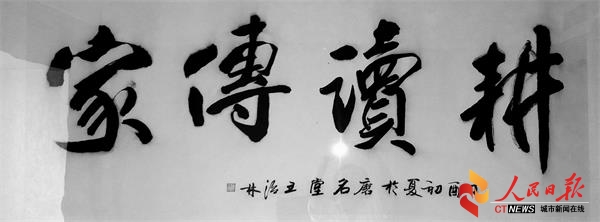 耕讀傳家
酉初夏於 堂 王治林
人民日报
CTNEWS 城市新闻在线